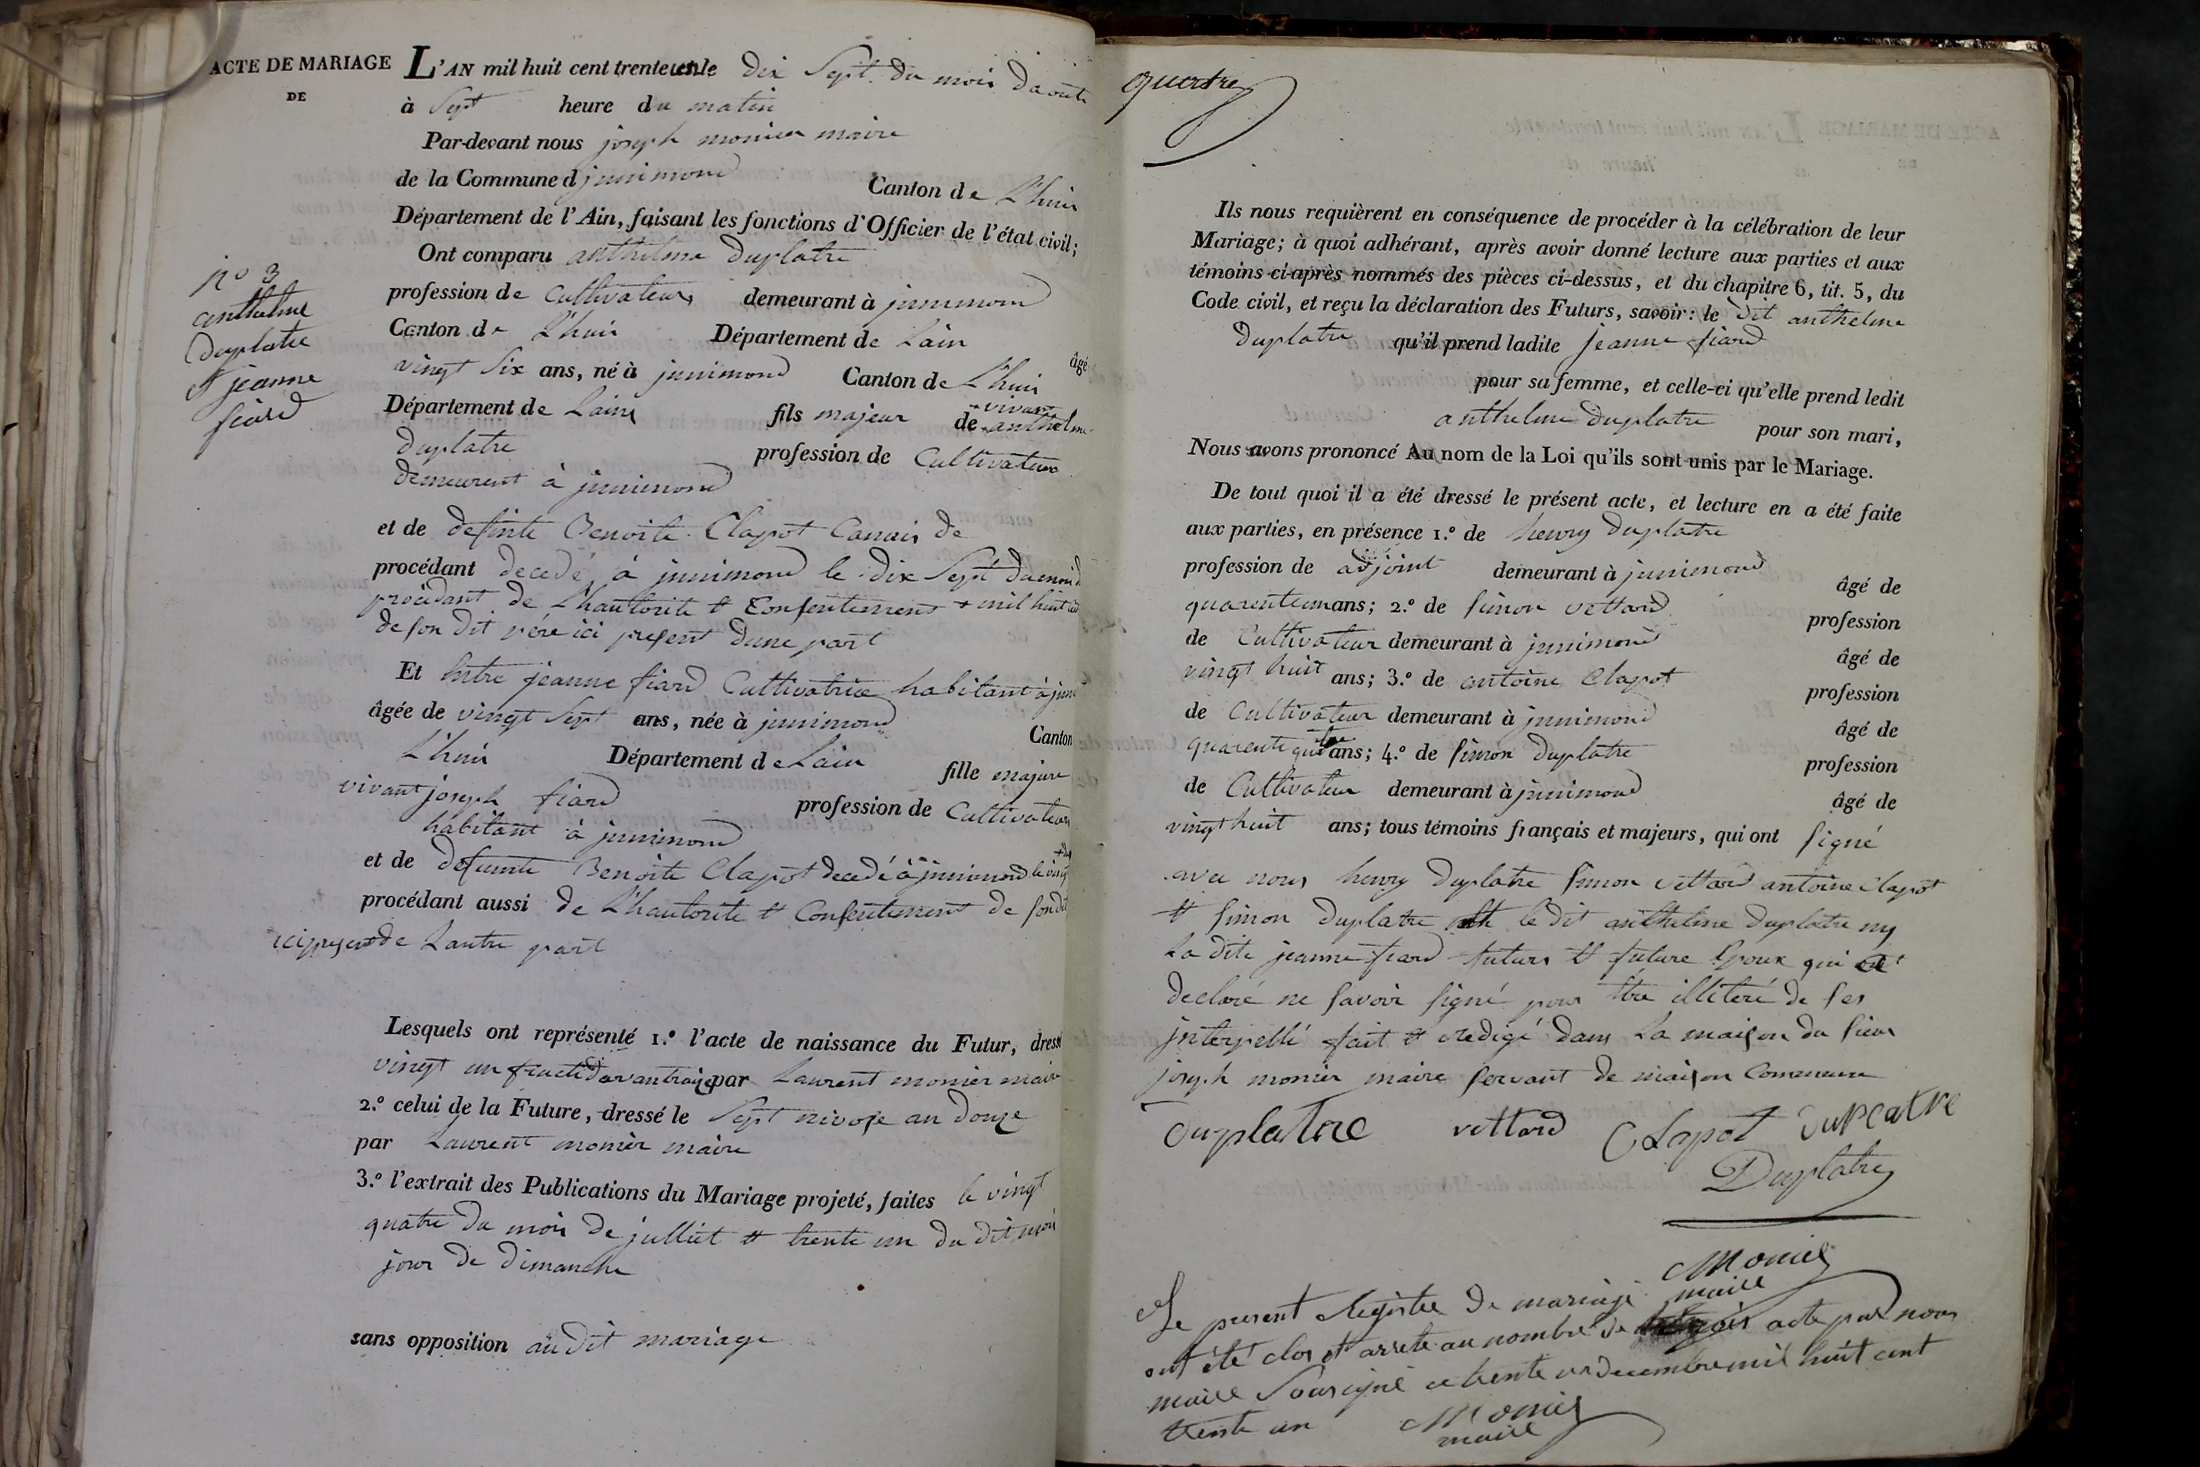 ACTE DE MARIAGE
DE
n° 3
anthelme
Duplatre
& jeanne
fiard
L'AN mil huit cent trente un le dix Sept du mois Daout
à Sept heure du matin
Par-devant nous joseph monier maire
de la Commune d junimond Canton de L'huis
Département de l'Ain, faisant les fonctions d'Officier de l'état civil;
Ont comparu anthelme Duplatre
profession de Cultivateur demeurant à junimond
Canton de L'huis Département de Lain âgé
vingt Six ans, né à junimond Canton de L'huis
Département de Lain fils majeur de vivant anthelme
Duplatre profession de Cultivateur
demeurent à junimond
et de definte Benoite Clapot de
procédant decedé à junimond le dix Sept du mois
procédant de L'hautorite & Consentement + mil huit
de son dit père ici present dune part
Et Entre jeanne fiard Cultivatrice habitant à
âgée de vingt Sept ans, née à junimond Canton
L'huis Département de Lain fille majure
vivant joseph fiard profession de Cultivateur
habitant à junimond
et de defunte Benoite Clapot decedé à junimond le
procédant aussi de L'hautorite & Consentement de son dit
ici present de Lautre part
Lesquels ont représenté 1.° l'acte de naissance du Futur, dressé
vingt un fructidor an traize par Laurent monier maire
2.° celui de la Future, dressé le Sept nivose an douze
par Laurent monier maire
3.° l'extrait des Publications du Mariage projeté, faites le vingt
quatre du mois de julliet & trente un du dit mois
jour de dimanche
sans opposition au dit mariage
quatre
Ils nous requièrent en conséquence de procéder à la célébration de leur
Mariage; à quoi adhérant, après avoir donné lecture aux parties et aux
témoins ci-après nommés des pièces ci-dessus, et du chapitre 6, tit. 5, du
Code civil, et reçu la déclaration des Futurs, savoir: le dit anthelme
Duplatre qu'il prend ladite jeanne fiard
pour sa femme, et celle-ci qu'elle prend ledit
anthelme Duplatre pour son mari,
Nous avons prononcé Au nom de la Loi qu'ils sont unis par le Mariage.
De tout quoi il a été dressé le présent acte, et lecture en a été faite
aux parties, en présence 1.° de henry Duplatre
profession de adjoint demeurant à junimond âgé de
quarente un ans; 2.° de simon vettard profession
de Cultivateur demeurant à junimond âgé de
vingt huit ans; 3.° de antoine Clapot profession
de Cultivateur demeurant à junimond âgé de
quarente ans; 4.° de simon Duplatre profession
de Cultivateur demeurant à junimond âgé de
vingt huit ans; tous témoins français et majeurs, qui ont signé
avec nous henry Duplatre simon vettard antoine Clapot
& simon Duplatre le dit anthelme Duplatre ny
La dite jeanne fiard futurs & future Epoux qui ont
declaré ne savoir signé pour Etre illiteré de ses
interpellé fait & redigé dans La maison du sieur
joseph monier maire servant de maison Commune
Duplatre vettard Clapot DuPlatre
Duplatre
Monier
maire
Le present Registre de mariage
ont été clos et arrete au nombre de trois acte par nous
maire Soussigné ce trente un Decembre mil huit cent
trente un Monier
maire